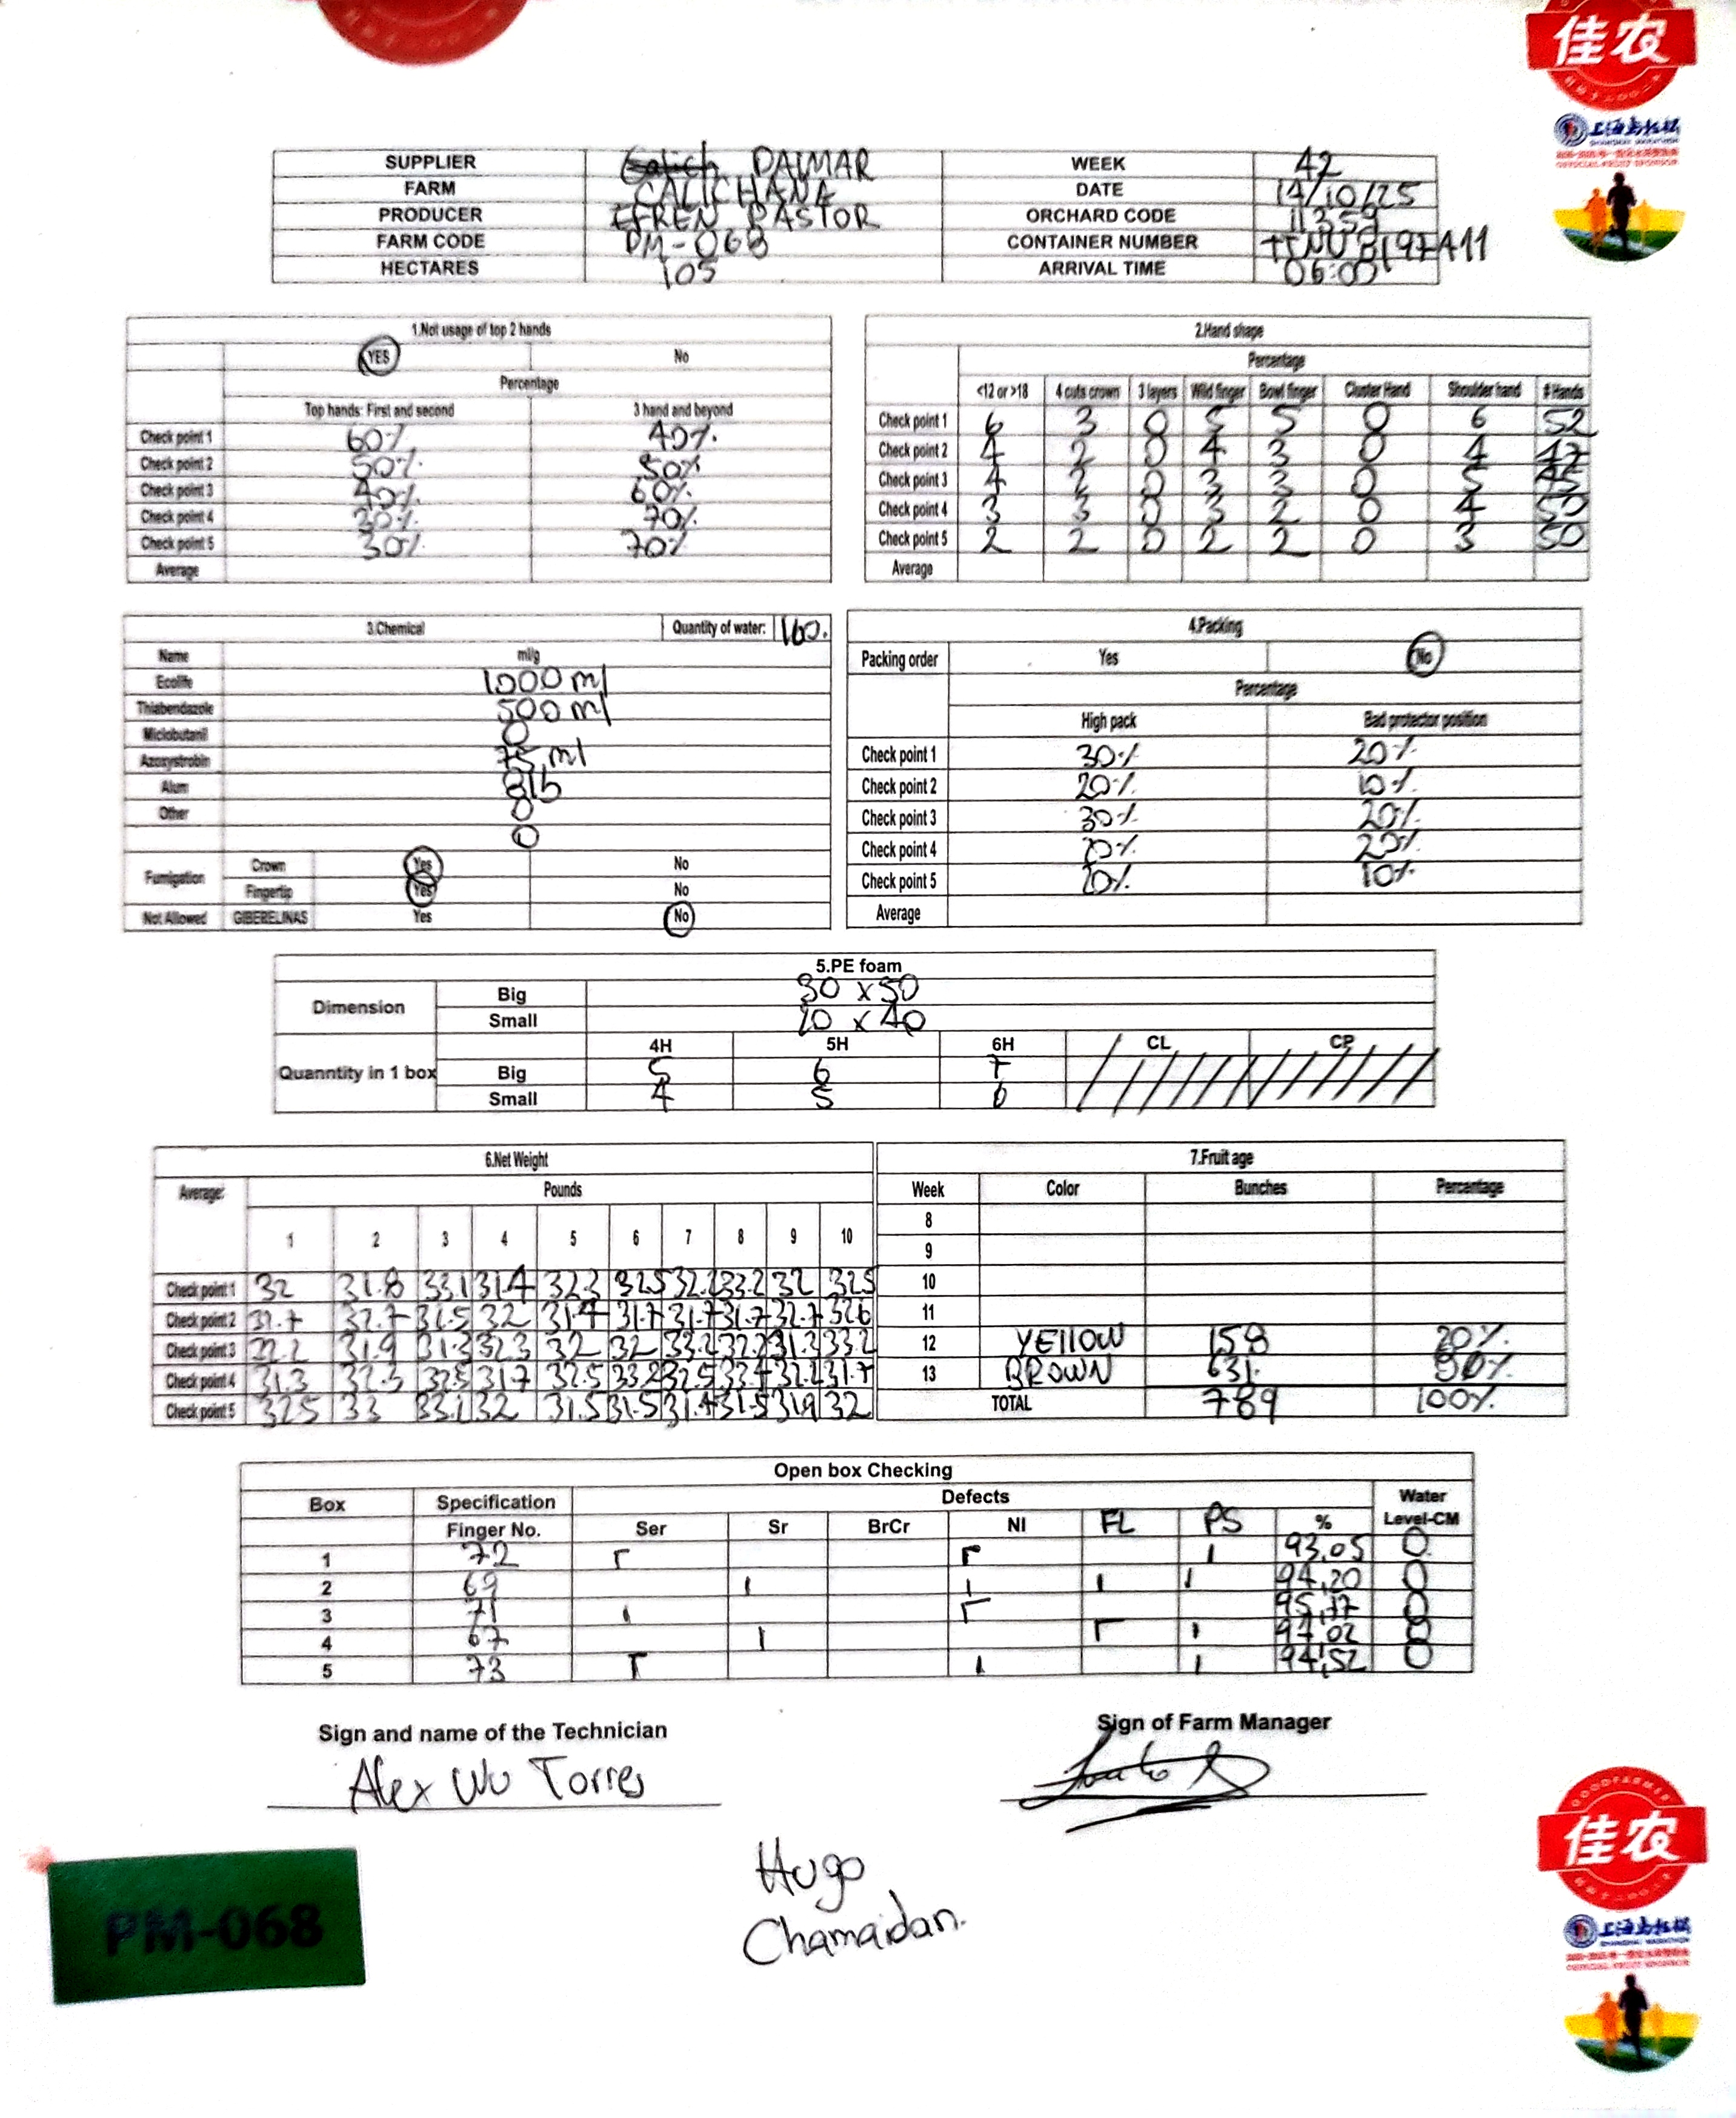 佳农
上海马拉松
SHANGHAI MARATHON
SUPPLIER DAIMAR WEEK 42
FARM CALICHANA DATE 14/10/25
PRODUCER EFREN PASTOR ORCHARD CODE 11359
FARM CODE PM-068 CONTAINER NUMBER
HECTARES 105 ARRIVAL TIME 06:00
1.Not usage of top 2 hands
YES No
Percentage
Top hands: First and second 3 hand and beyond
Check point 1 60% 40%
Check point 2 50% 50%
Check point 3 40% 60%
Check point 4 30% 70%
Check point 5 30% 70%
Average
2.Hand shape
Percentage
<12 or >18 4 cuts crown 3 layers Wild finger Bowl finger Cluster Hand Shoulder hand # Hands
Check point 1 6 3 0 5 5 0 6 52
Check point 2 4 2 0 4 3 0 4 47
Check point 3 4 2 0 3 3 0 5 45
Check point 4 3 3 0 3 2 0 4 50
Check point 5 2 2 0 2 2 0 3 50
Average
3.Chemical Quantity of water: 160.
Name ml/g
Ecolife 1000 ml
Thiabendazole 500 ml
Miclobutanil 0
Azoxystrobin 75 ml
Alum 8lb
Other 0
0
Fumigation Crown Yes No
Fingertip Yes No
Not Allowed GIBERELINAS Yes No
4.Packing
Packing order Yes No
Percentage
High pack Bad protector position
Check point 1 30% 20%
Check point 2 20% 10%
Check point 3 30% 20%
Check point 4 20% 20%
Check point 5 10%
Average
5.PE foam
Dimension Big 30 x 50
Small 20 x 40
4H 5H 6H CL CP
Quanntity in 1 box Big 5 6 7
Small 4 5 6
6.Net Weight
Average: Pounds
1 2 3 4 5 6 7 8 9 10
Check point 1 32 31.8 33.1 31.4 32.3 32.5 32.2 33.2 32 32.5
Check point 2 31.7 32.7 31.5 32 31.4 31.7 31.7 31.7 32.7 32.6
Check point 3 32.2 31.9 31.3 32.3 32 32 33.2 32.2 31.3 33.2
Check point 4 31.3 32.3 32.5 31.7 32.5 33.2 32.5 32.2 31.7
Check point 5 32.5 33 33.2 32 31.5 31.5 31.4 31.5 31.9 32
7.Fruit age
Week Color Bunches Percentage
8
9
10
11
12 YEllOW 158 20%
13 BROWN 631
TOTAL 789 100%
Open box Checking
Box Specification Defects Water
Finger No. Ser Sr BrCr NI FL PS % Level-CM
1 72 93,05 0
2 69 94,20 0
3 71 95,77 0
4 67 94,02 0
5 73 94,52 0
Sign and name of the Technician Sign of Farm Manager
Alex Wu Torres
Hugo
Chamaidan.
PM-068
GOODFARMER
佳农
上海马拉松
SHANGHAI MARATHON